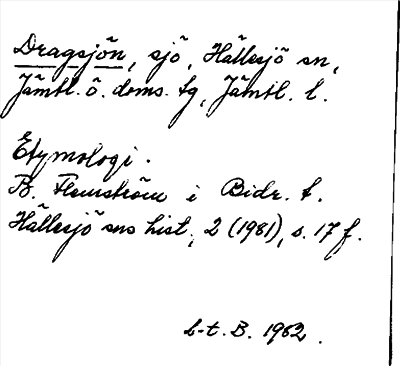 Dragsjön, sjö, Hällesjö sn,
Jämtl. ö. doms. tg, Jämtl. l.
Etymologi.
B. Flemström i Bidr. t.
Hällesjö sns hist., 2 (1981), s. 17 f.
L-t. B. 1982.